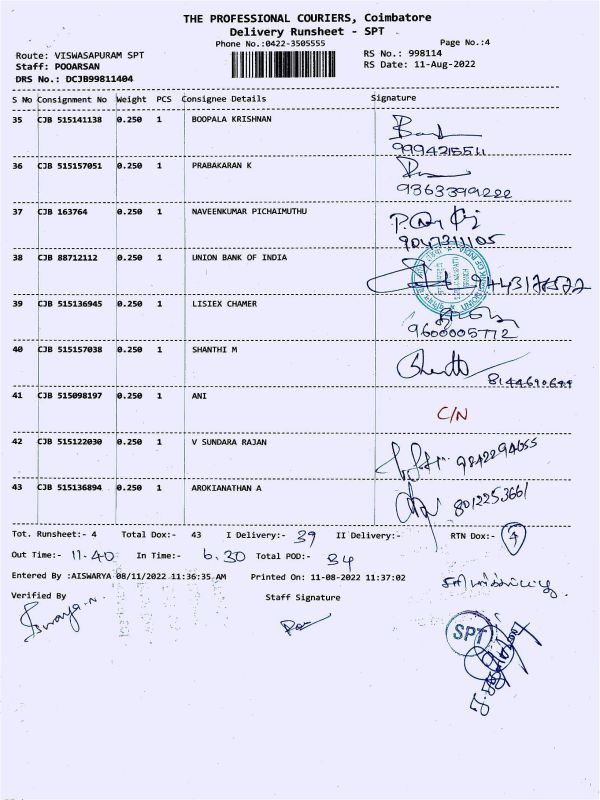 THE PROFESSIONAL COURIERS, Coimbatore
Delivery Runsheet - SPT
Phone No.:0422-3505555
Page No.:4
Route: VISWASAPURAM SPT
RS No.: 998114
Staff: POOARSAN
RS Date: 11-Aug-2022
DRS No.: DCJB99811404
S No Consignment No Weight PCS Consignee Details Signature
35 CJB 515141138 0.250 1 BOOPALA KRISHNAN
9994215511
36 CJB 515157051 0.250 1 PRABAKARAN K
9363399222
37 CJB 163764 0.250 1 NAVEENKUMAR PICHAIMUTHU
9047311105
38 CJB 88712112 0.250 1 UNION BANK OF INDIA
39 CJB 515136945 0.250 1 LISIEX CHAMER
9600005772
40 CJB 515157038 0.250 1 SHANTHI M
41 CJB 515098197 0.250 1 ANI
C/N
42 CJB 515122030 0.250 1 V SUNDARA RAJAN
9842294655
43 CJB 515136894 0.250 1 AROKIANATHAN A
8012253661
Tot. Runsheet:- 4 Total Dox:- 43 I Delivery:- 39 II Delivery:- RTN Dox:- 4
Out Time:- 11.40 In Time:- 6.30 Total POD:- 34
Entered By :AISWARYA 08/11/2022 11:36:35 AM Printed On: 11-08-2022 11:37:02
Verified By Staff Signature
SPT